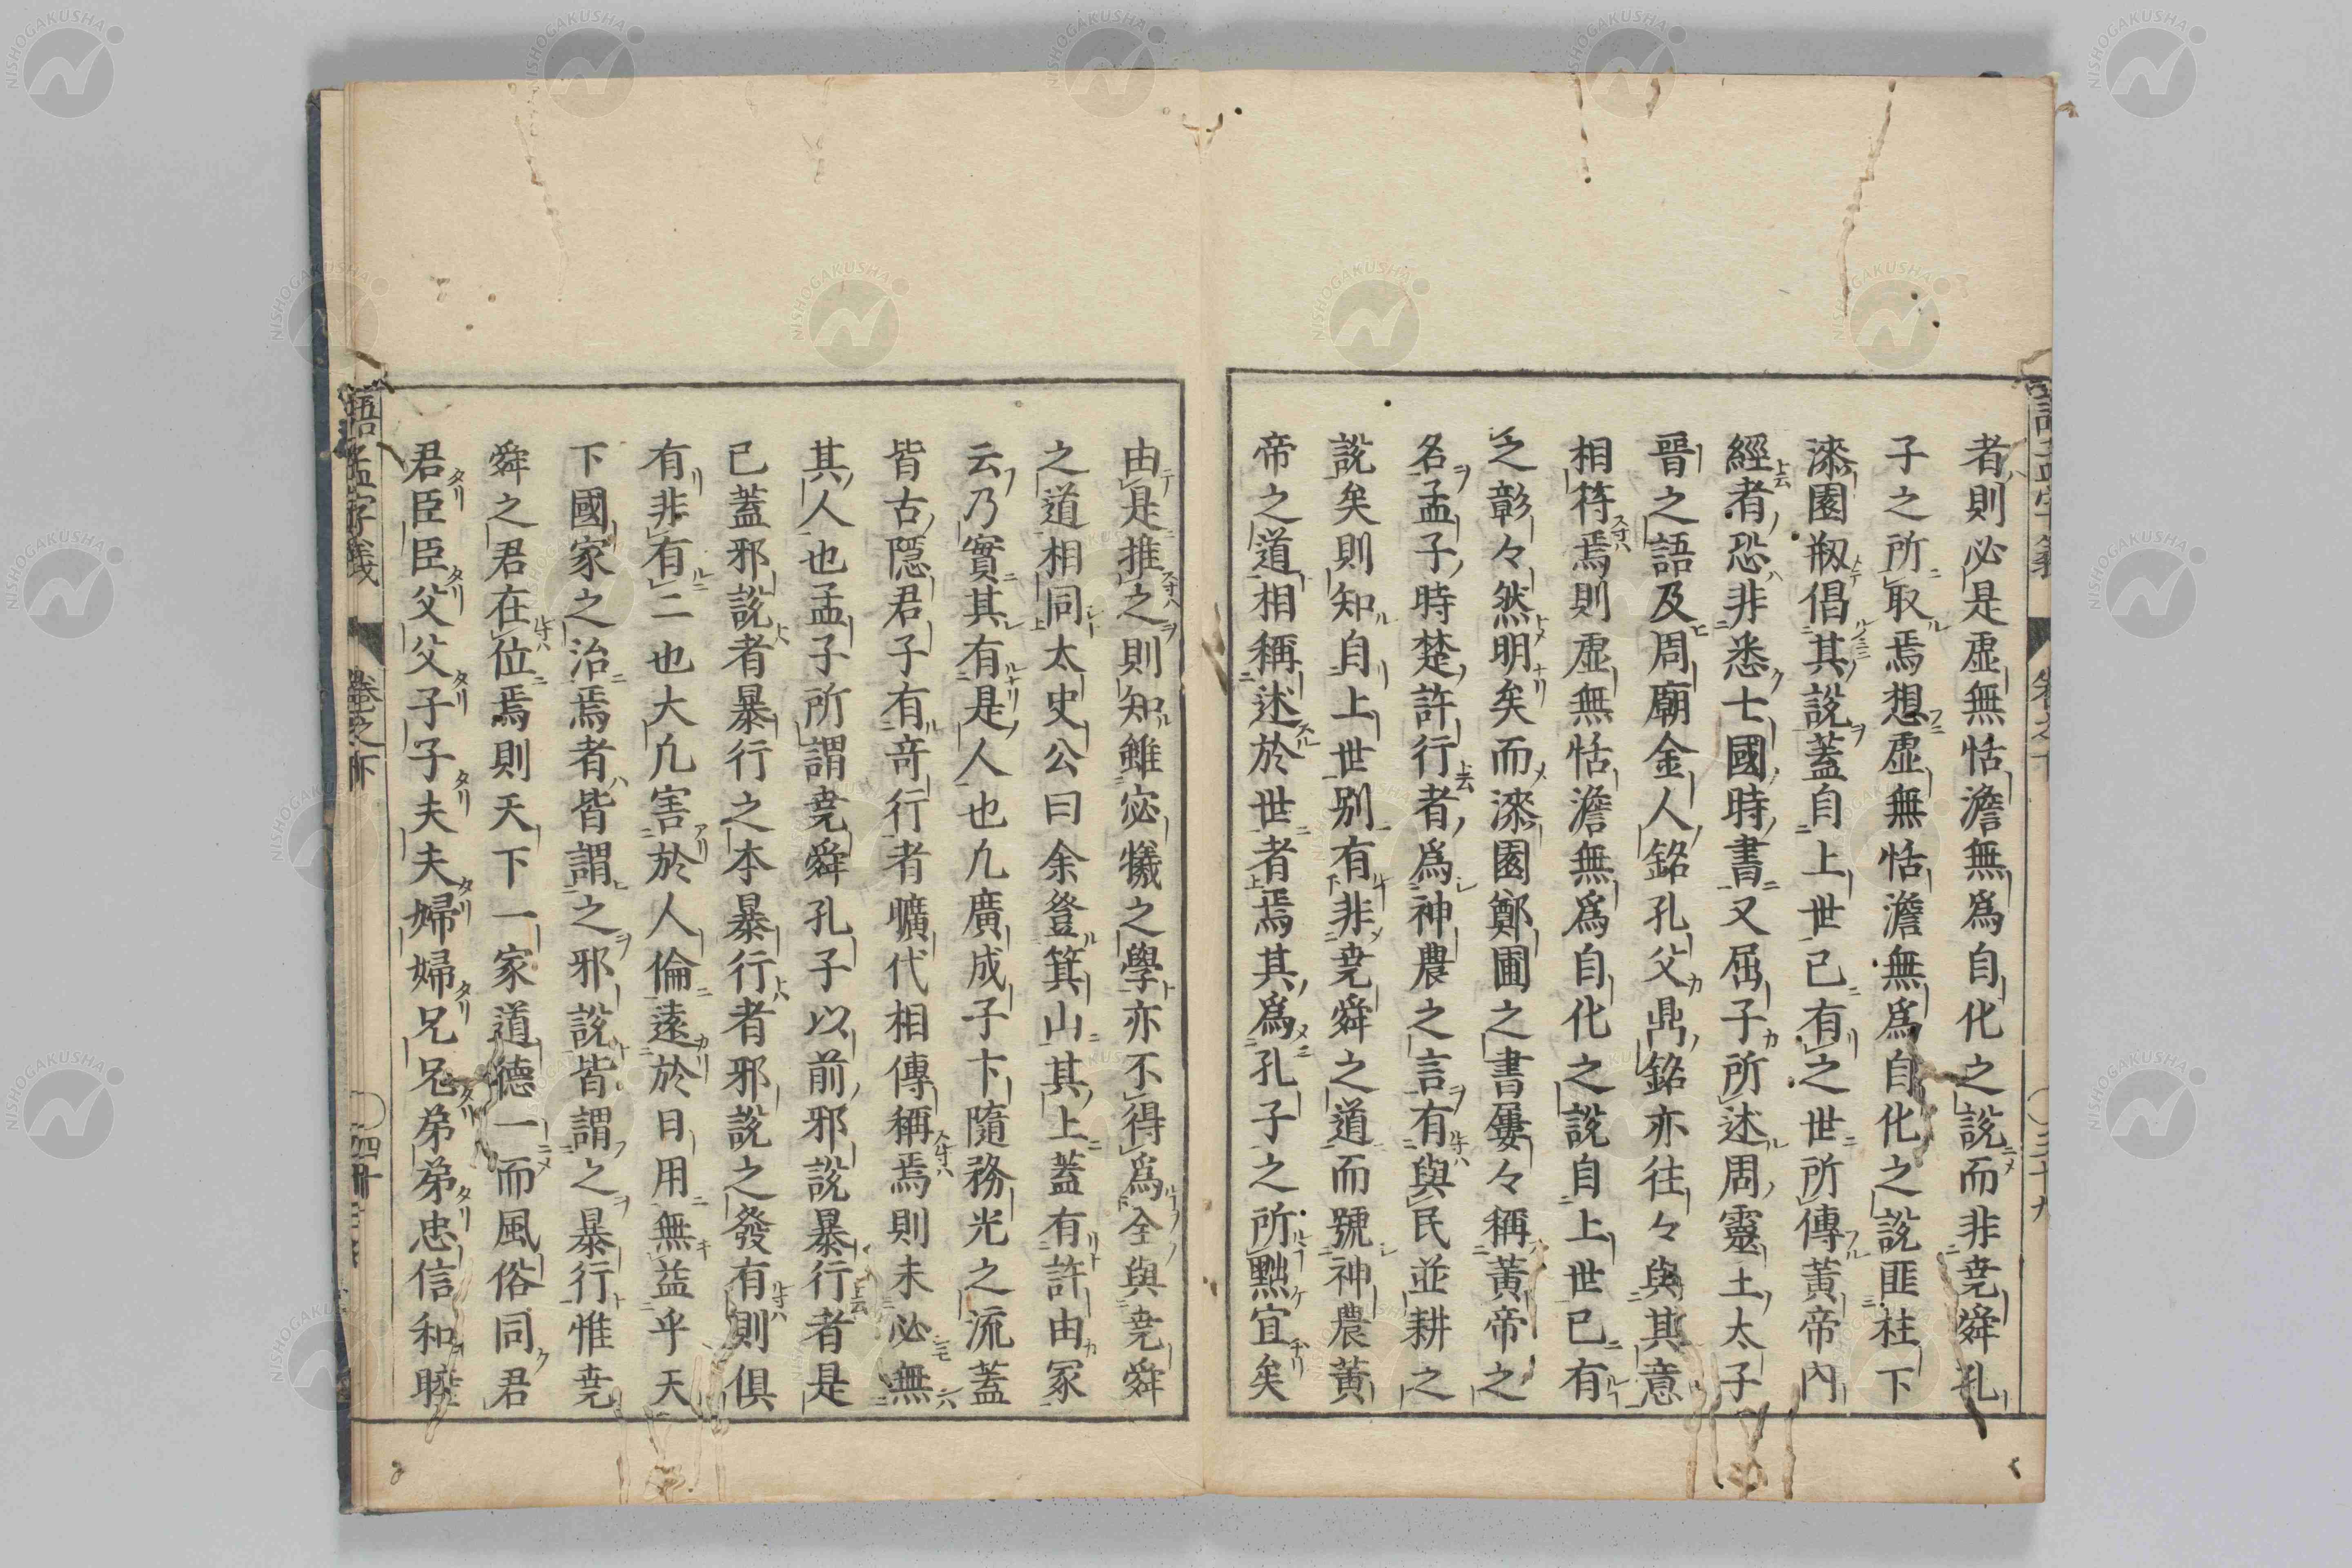 者則必是虛無恬澹無爲自化之說而非尭舜孔
子之所取焉想虛無恬澹無爲自化之說匪柱下
漆園剏倡其說蓋自上世已有之世所傳黃帝內
經者恐非悉七國時書又屈子所述周靈王太子
晉之語及周廟金人銘孔父鼎銘亦往々與其意
相符焉則虛無恬澹無爲自化之說自上世已有
之彰々然明矣而漆園鄭圃之書屢々稱黃帝之
名孟子時楚許行者爲神農之言有與民並耕之
說矣則知自上世別有非尭舜之道而號神農黃
帝之道相稱述於世者焉其爲孔子之所黜宜矣
由是推之則知雖宓犧之學亦不得爲全與尭舜
之道相同太史公曰余登箕山其上蓋有許由冢
云乃實其有是人也凢廣成子卞隨務光之流蓋
皆古隱君子有竒行者曠代相傳稱焉則未必無
其人也孟子所謂尭舜孔子以前邪說暴行者是
已蓋邪說者暴行之本暴行者邪說之發有則俱
有非有二也大凢害於人倫遠於日用無益乎天
下國家之治焉者皆謂之邪說皆謂之暴行惟尭
舜之君在位焉則天下一家道德一而風俗同君
君臣臣父父子子夫夫婦婦兄兄弟弟忠信和睦
語孟字義
卷之下
三十九
語孟字義
卷之下
四十
NISHOGAKUSHA